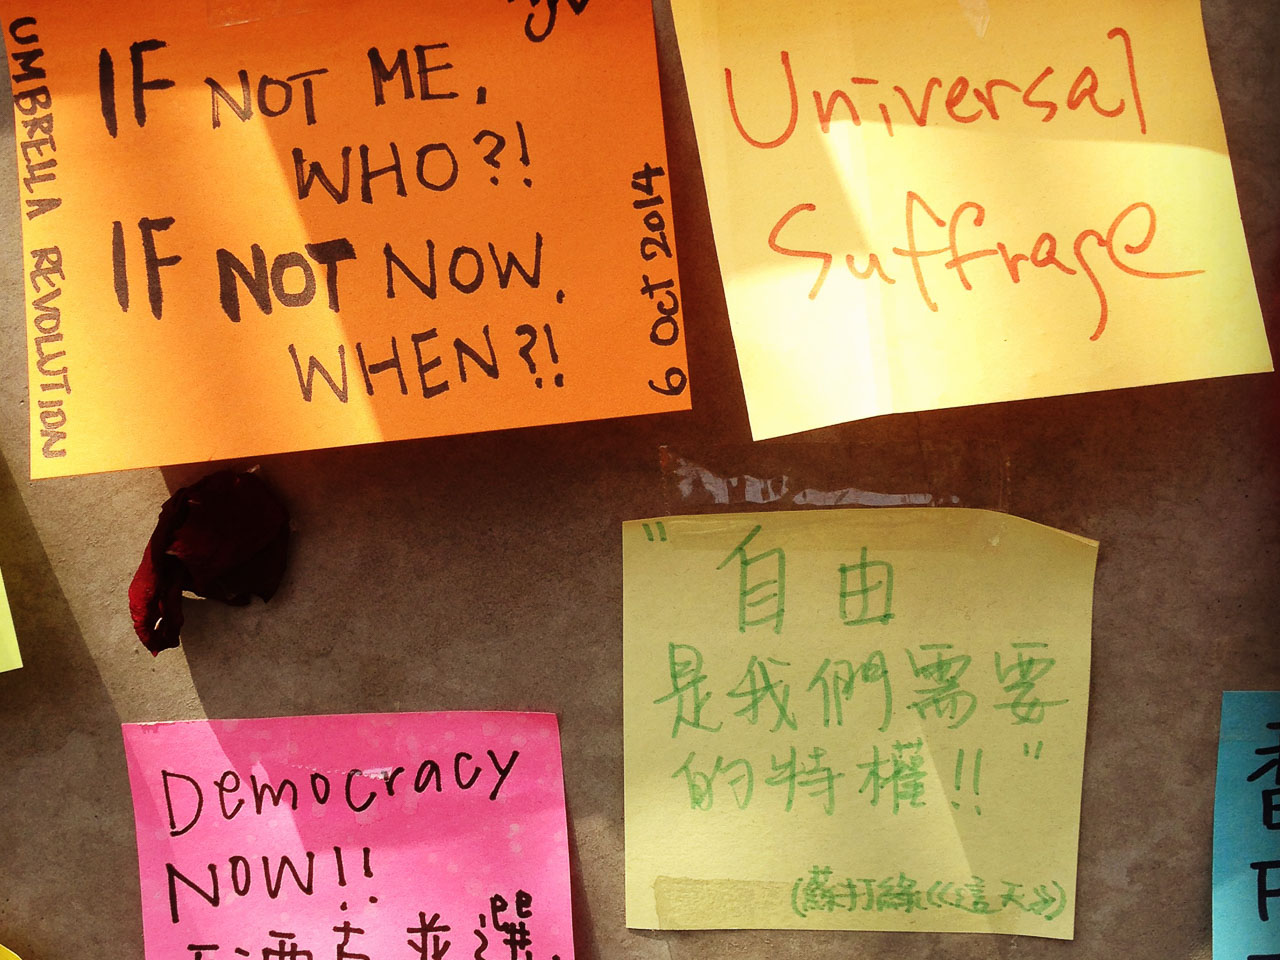 UMBRELLA REVOLUTION
IF NOT ME,
WHO?!
IF NOT NOW,
WHEN?!
6 Oct 2014
Universal
Suffrage
"自由
是我們需要
的特權!!"
(蘇打綠《這天》)
Democracy
NOW!!